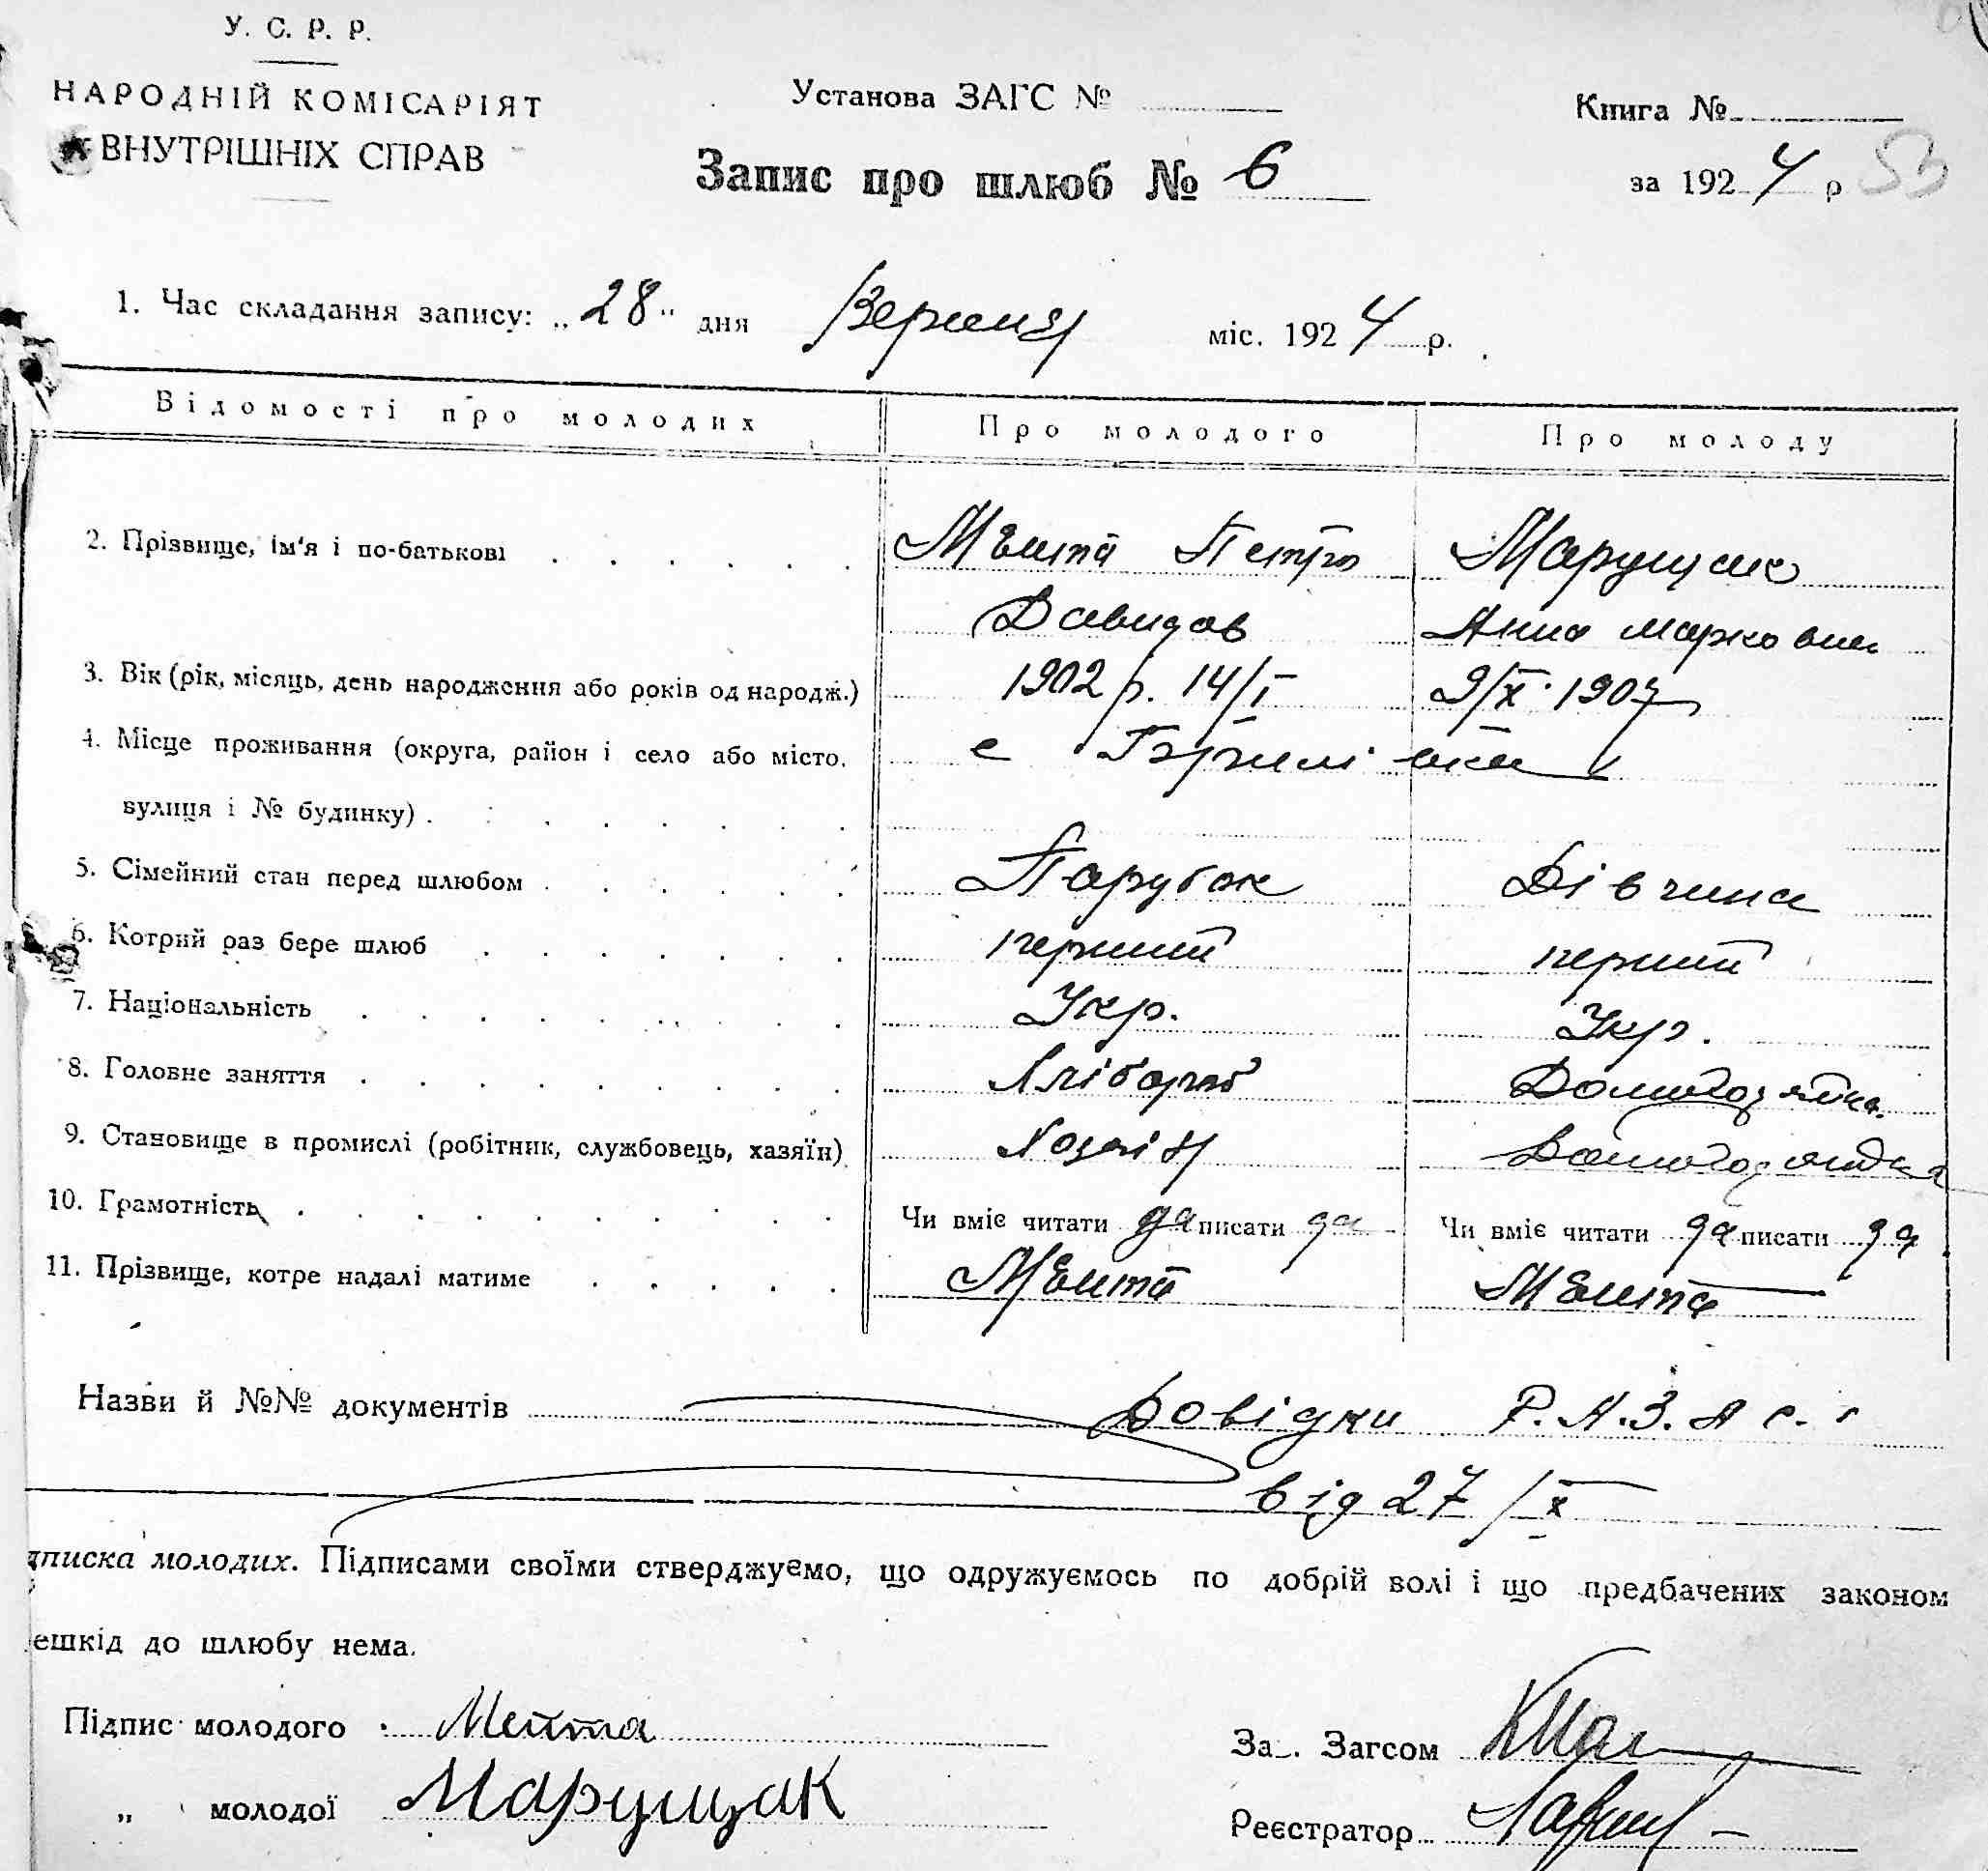 У. С. Р. Р.
НАРОДНІЙ КОМІСАРІЯТ
ВНУТРІШНІХ СПРАВ
Установа ЗАГС №
Книга №
Запис про шлюб № 6
за 1924 р
53
1. Час складання запису: „28" дня Вересня міс. 1924 р.
Відомості про молодих Про молодого Про молоду
2. Прізвище, ім'я і по-батькові Петро Марущак
Давидов Анна Марковна
3. Вік (рік, місяць, день народження або років од народж.) 1902 р. 14/I 9/X 1907
4. Місце проживання (округа, район і село або місто, с
вулиця і № будинку)
5. Сімейний стан перед шлюбом Парубок Дівчина
6. Котрий раз бере шлюб перший перший
7. Національність Укр. Укр.
8. Головне заняття Хлібороб Домогоз яйка.
9. Становище в промислі (робітник, службовець, хазяїн) Хозяїн
10. Грамотність Чи вміє читати да писати да Чи вміє читати да писати да
11. Прізвище, котре надалі матиме
Назви й №№ документів Довідки
від 27/X
дписка молодих. Підписами своїми стверджуємо, що одружуємось по добрій волі і що предбачених законом
ешкід до шлюбу нема.
Підпис молодого Мейта
За Загсом
„ молодої Марущак
Реєстратор